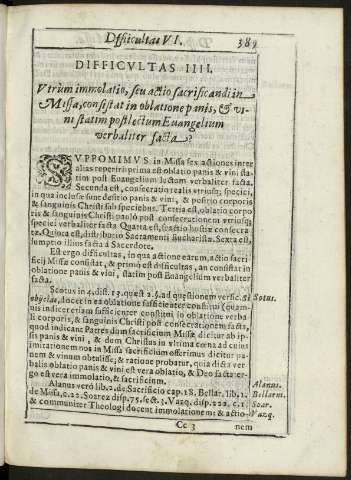 Difficultas VI. 389
DIFFICVLTAS IIII.
Vtrùm immolatio, seu actio sacrificandi in
Missa, consistat in oblatione panis, & vi-
ni statim post lectum Euangelium
verbaliter facta?
SVPPOMIMVS in Missa sex actiones inter
alias reperiri: prima est oblatio panis & vini sta-
tim post Euangelium lectum verbaliter facta.
Secunda est, consecratio realis vtriusq; speciei,
in qua incluse sunt desitio panis & vini, & positio corporis
& sanguinis Christi sub speciebus. Tertia est, oblatio corpo
ris & sanguinis Christi paulò post consecrationem vtriusq;
speciei verbaliter facta Quarta est, fractio hostiæ consecra
tæ. Quinta est, distributio Sacramenti Eucharistiæ. Sexta est,
sumptio illius facta à Sacerdote.
Est ergo difficultas, in qua actione earum, actio sacri-
ficij Missæ consistat, & primò est difficultas, an consistat in
oblatione panis & vini, statim post Euangelium verbaliter
facta.
Scotus in 4. dist. 13. quæst 2. §. ad quæstionem versic. Si Scotus.
obijcias, docet in ea oblatione
nis indicet etiam sufficienter constitui in oblatione verba
li corporis, & sanguinis Christi post consecrationem facta,
quod indicant Patres dum sacrificium Missæ dicitur ab ip-
sis panis & vini, & dem Christus in vltima cœna ad cuius
imitationem nos in Missa sacrificium offerimus dicitur pa-
nem & vinum obtulisse; & ratione probatur, quia dicta ver-
balis oblatio panis & vini est vera oblatio, & Deo facta: er-
go est vera immolatio, & sacrificium.
Alanus verò lib. 2. de Sacrificio cap. 18. Bellar. lib. 1. Alanus.
de Missa, c. 22. Soarez disp. 75. sect. 3. Vazq. disp. 222. c. 1. Bellarm.
& communiter Theologi docent immolationem & actio- Soar.
Vazq.
Cc 3 nem